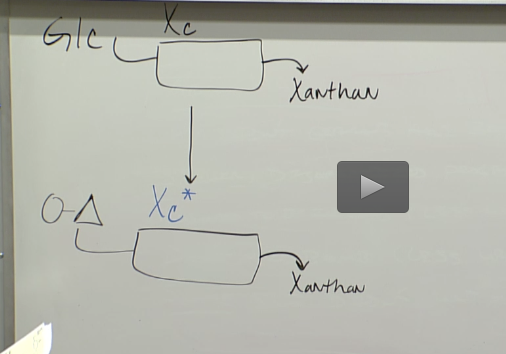 Glc
Xc
Xanthan
Xc*
Xanthan